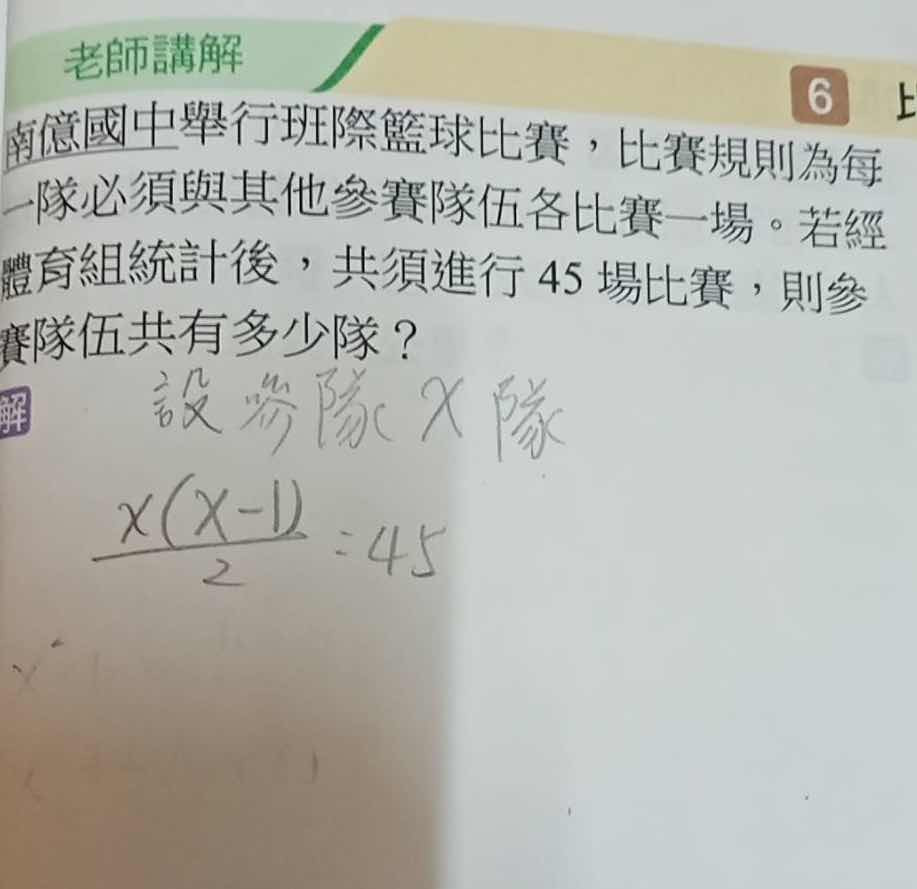 老師講解
6
南億國中舉行班際籃球比賽，比賽規則為每
一隊必須與其他參賽隊伍各比賽一場。若經
體育組統計後，共須進行 45 場比賽，則參
賽隊伍共有多少隊？
解
設參隊 x 隊
x(x-1)/2 = 45